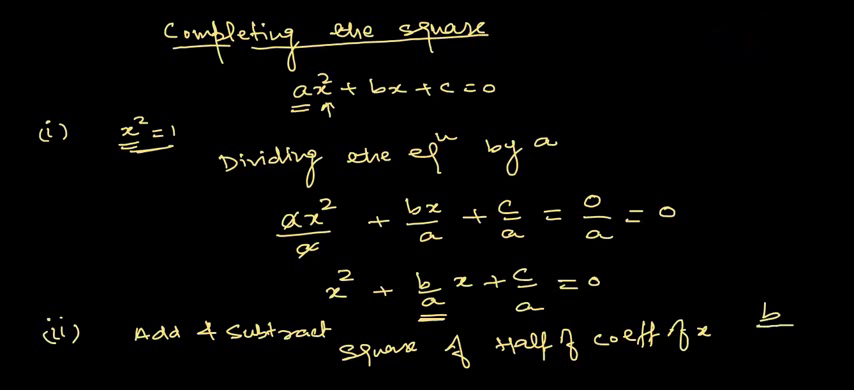 Completing the square
ax² + bx + c = 0
(i) x² = 1
Dividing the eqⁿ by a
ax²/a + bx/a + c/a = 0/a = 0
x² + b/a x + c/a = 0
(ii) Add & Subtract square of Half of coeff of x b